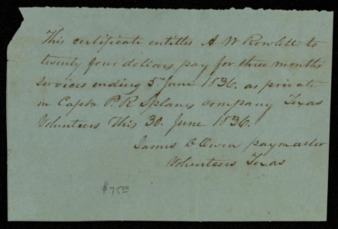 This certificate entitles A W Rowlett to
twenty four dollars pay for three months
services ending 5 June 1836. as private
in Capta P. R. company Texas
Volunteers This 30. June 1836.
James paymaster
Volunteers Texas
$75